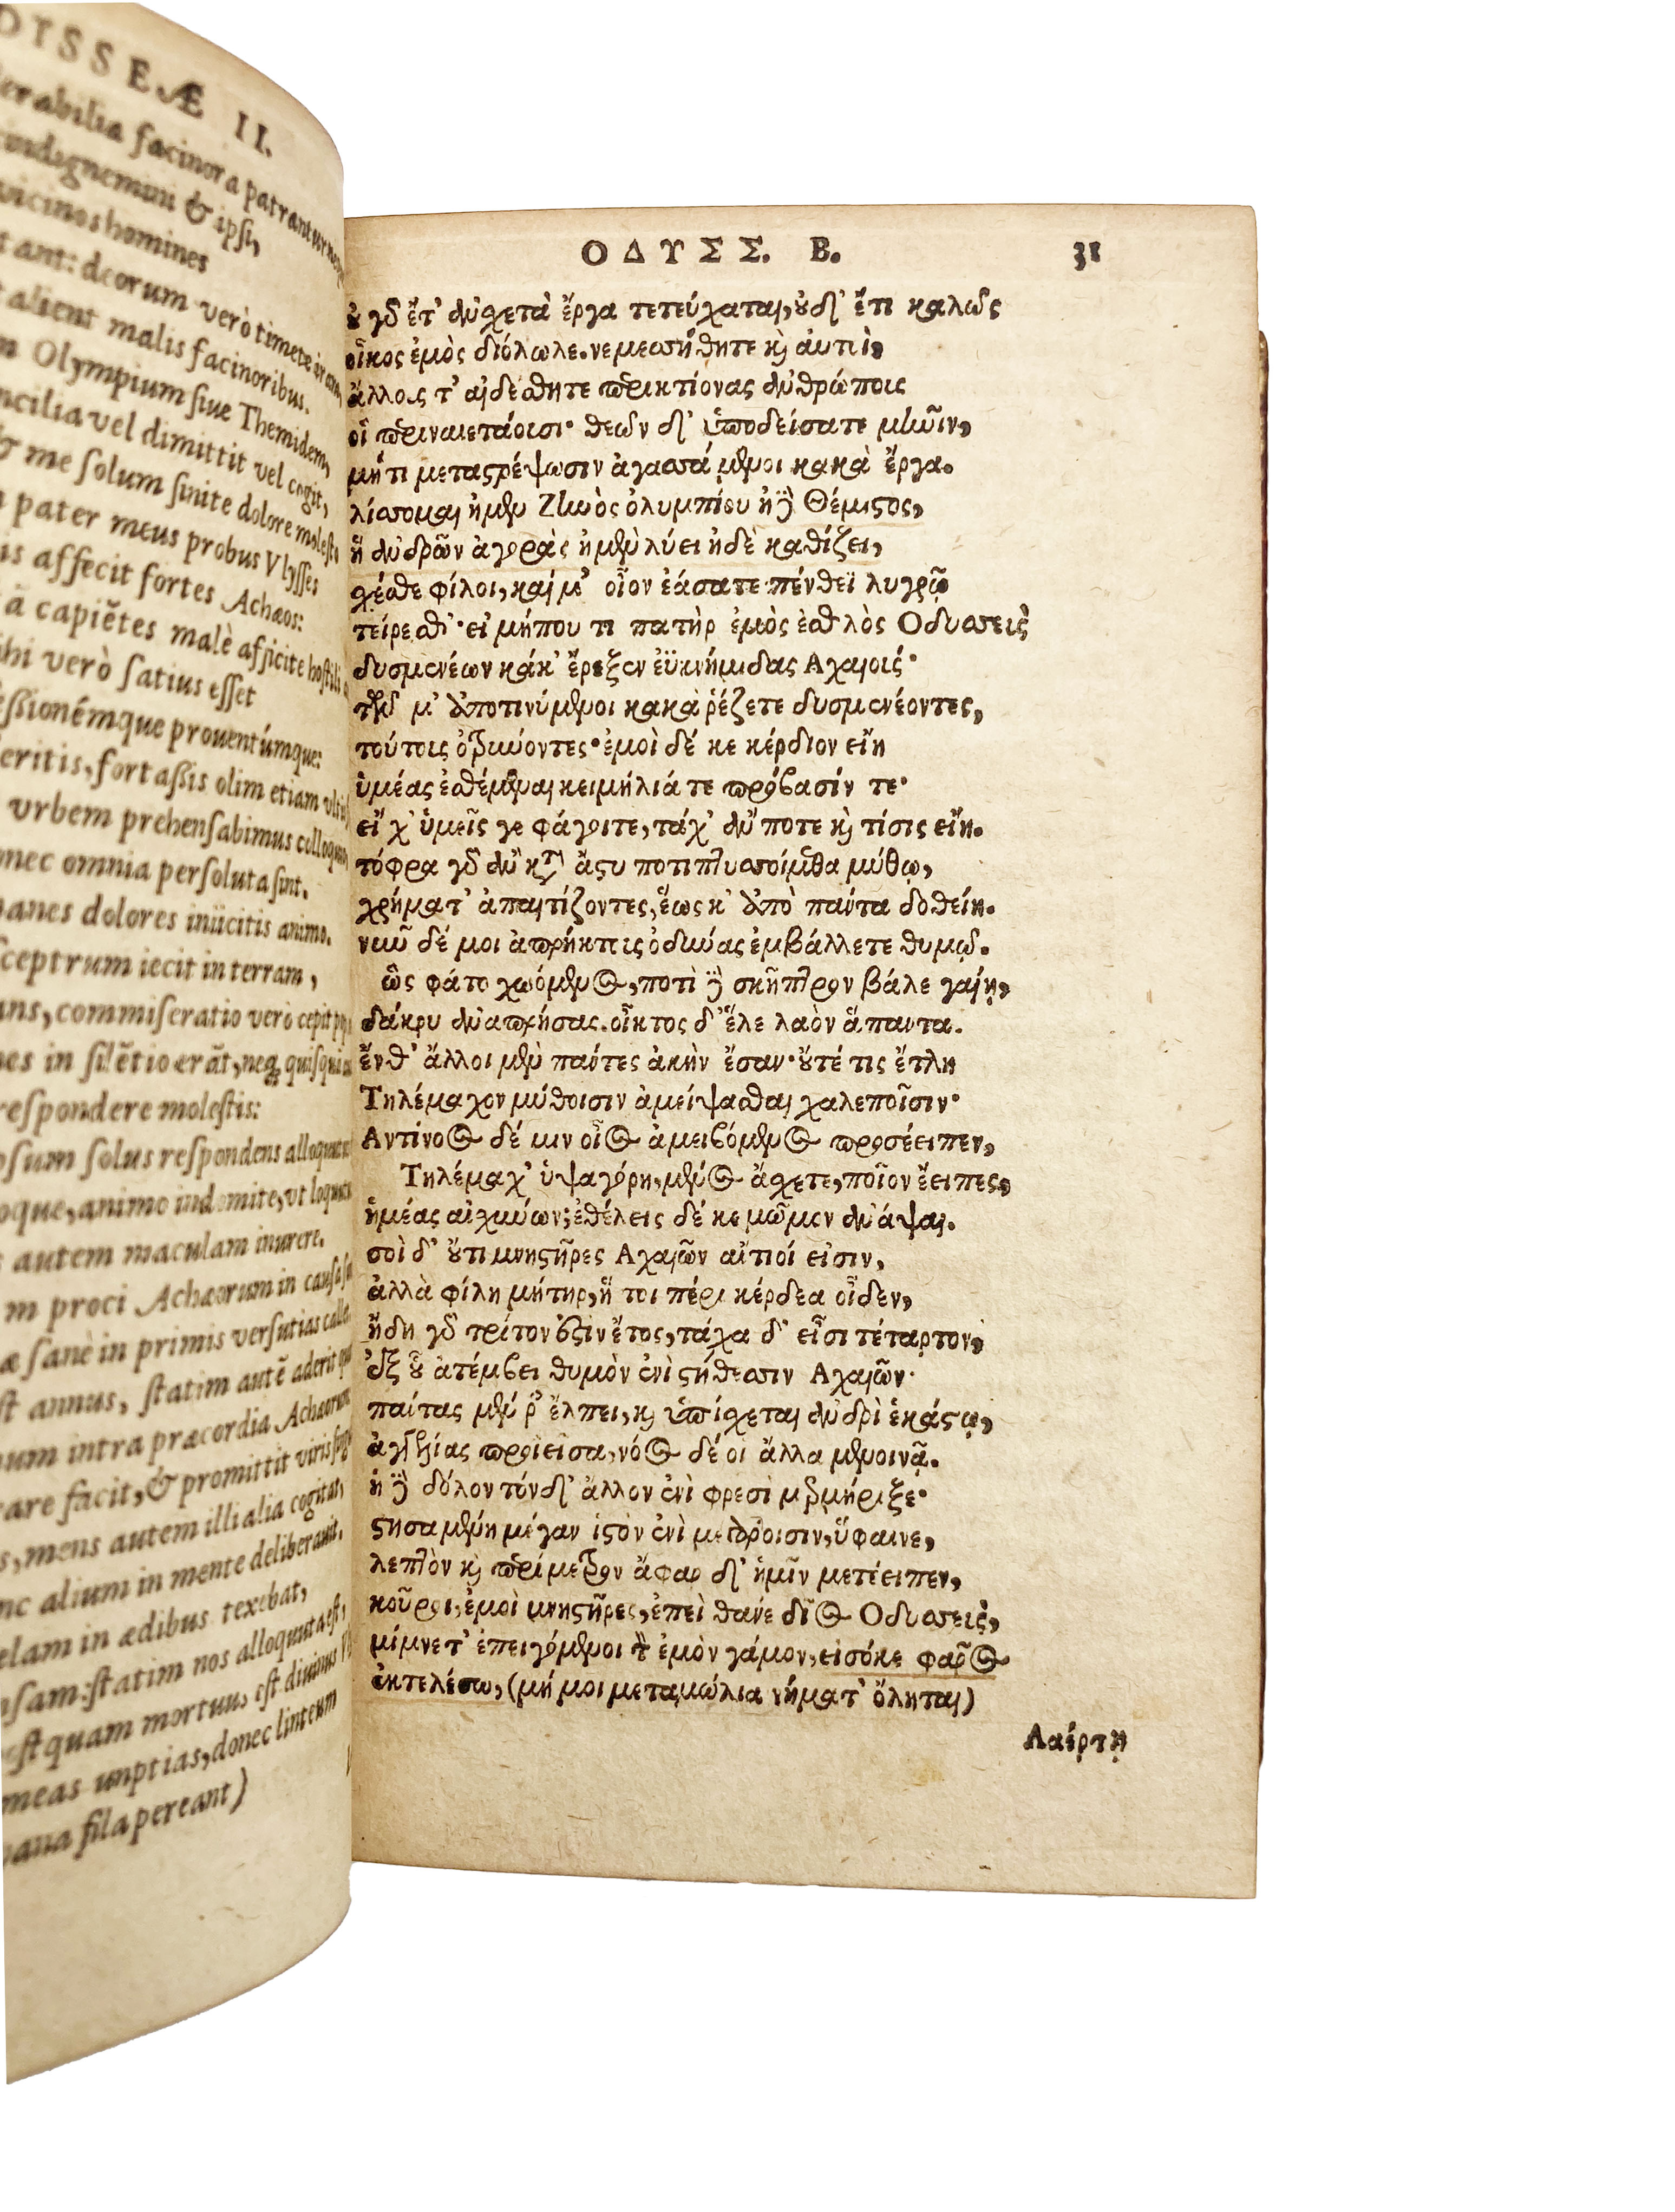 DYSSEÆ II.
erabilia facinora patrantur neque
indignemini & ipsi,
vicinos homines
ant: deorum verò timete iram,
alient malis facinoribus.
Olympium siue Themidem,
ncilia vel dimittit vel cogit,
& me solum sinite dolore molesto
pater meus probus Vlysses
is affecit fortes Achæos:
à capiẽtes malè afficite hostili
hi verò satius esset
essionémque prouentúmque:
eritis, fortaßis olim etiam vltio
vrbem prehensabimus colloquio
nec omnia persoluta sint.
anes dolores iniicitis animo.
sceptrum iecit in terram,
ans, commiseratio verò cepit
es in silẽtio erãt, neq; quisquã
respondere molestis:
psum solus respondens alloquutus
oque, animo indomite, vt loquutus
autem maculam inurere.
m proci Achæorum in causa
æ sanè in primis versutias callet
st annus, statim autẽ aderit
num intra præcordia Achæorum
rare facit, & promittit viris
s, mens autem illi alia cogitat,
nc alium in mente deliberauit.
elam in ædibus texebat,
nsam: statim nos alloquuta est,
est quam mortuus est diuinus
meas nuptias, donec linteum
vana fila pereant)
ΟΔΥΣΣ. Β. 31
οὐ γὰρ ἔτ' ἀνχετὰ ἔργα τετεύχαται, οὐδ' ἔτι καλῶς
οἶκος ἐμὸς διόλωλε. νεμεσσήθητε καὶ ἀυτοὶ,
ἄλλους τ' αἰδέσθητε περικτίονας ἀνθρώποις
οἳ περιναιετάουσι· θεῶν δ' ὑποδείσατε μῆνιν,
μή τι μεταστρέψωσιν ἀγασσάμενοι κακὰ ἔργα.
λίσσομαι ἠμὲν Ζηνὸς ὀλυμπίου ἠδὲ Θέμιστος,
ἥ ἀνδρῶν ἀγορὰς ἠμὲν λύει ἠδὲ καθίζει,
σχέσθε φίλοι, καί μ' οἶον ἐάσατε πένθεϊ λυγρῷ
τείρεσθ'· εἰ μήπου τι πατὴρ ἐμὸς ἐσθλὸς Οδυσσεὺς
δυσμενέων κάκ' ἔρεξεν ἐϋκνήμιδας Αχαιούς·
τῶν μ' ἀποτινύμενοι κακὰ ῥέζετε δυσμενέοντες,
τούτοις ὀτρύνοντες· ἐμοὶ δέ κε κέρδιον εἴη
ὑμέας ἐσθέμεναι κειμήλιά τε πρόβασίν τε·
εἴ χ' ὑμεῖς γε φάγοιτε, τάχ' ἄν ποτε καὶ τίσις εἴη.
τόφρα γὰρ ἂν κατὰ ἄστυ ποτιπτυσσοίμεθα μύθῳ,
χρήματ' ἀπαιτίζοντες, ἕως κ' ἀπὸ πάντα δοθείη.
νῦν δέ μοι ἀπρήκτους ὀδύνας ἐμβάλλετε θυμῷ.
ὣς φάτο χωόμενος, ποτὶ δὲ σκῆπτρον βάλε γαίῃ,
δάκρυ ἀναπρήσας. οἶκτος δ' ἕλε λαὸν ἅπαντα.
ἔνθ' ἄλλοι μὲν πάντες ἀκὴν ἔσαν· οὔτέ τις ἔτλη
Τηλέμαχον μύθοισιν ἀμείψασθαι χαλεποῖσιν·
Αντίνοος δέ μιν οἶος ἀμειβόμενος προσέειπεν,
Τηλέμαχ' ὑψαγόρη, μένος ἄσχετε, ποῖον ἔειπες,
ἡμέας αἰσχύνων; ἐθέλεις δέ κε μῶμον ἀνάψαι.
σοὶ δ' οὔτι μνηστῆρες Αχαιῶν αἴτιοί εἰσιν,
ἀλλὰ φίλη μήτηρ, ἥ τοι πέρι κέρδεα οἶδεν,
ἤδη γὰρ τρίτον ἐστὶν ἔτος, τάχα δ' εἶσι τέταρτον,
ἐξ οὗ ἀτέμβει θυμὸν ἐνὶ στήθεσσιν Αχαιῶν·
πάντας μέν ῥ' ἔλπει, καὶ ὑπίσχεται ἀνδρὶ ἑκάστῳ,
ἀγγελίας προϊεῖσα, νόος δέ οἱ ἄλλα μενοινᾷ.
ἡ δὲ δόλον τόνδ' ἄλλον ἐνὶ φρεσὶ μερμήριξε·
στησαμένη μέγαν ἱστὸν ἐνὶ μεγάροισιν, ὕφαινε,
λεπτὸν καὶ περίμετρον ἄφαρ δ' ἡμῖν μετέειπεν,
κοῦροι, ἐμοὶ μνηστῆρες, ἐπεὶ θάνε δῖος Οδυσσεὺς,
μίμνετ' ἐπειγόμενοι τὸν ἐμὸν γάμον, εἰσόκε φᾶρος
ἐκτελέσω, (μή μοι μεταμώλια νήματ' ὄληται)
Λαέρτῃ